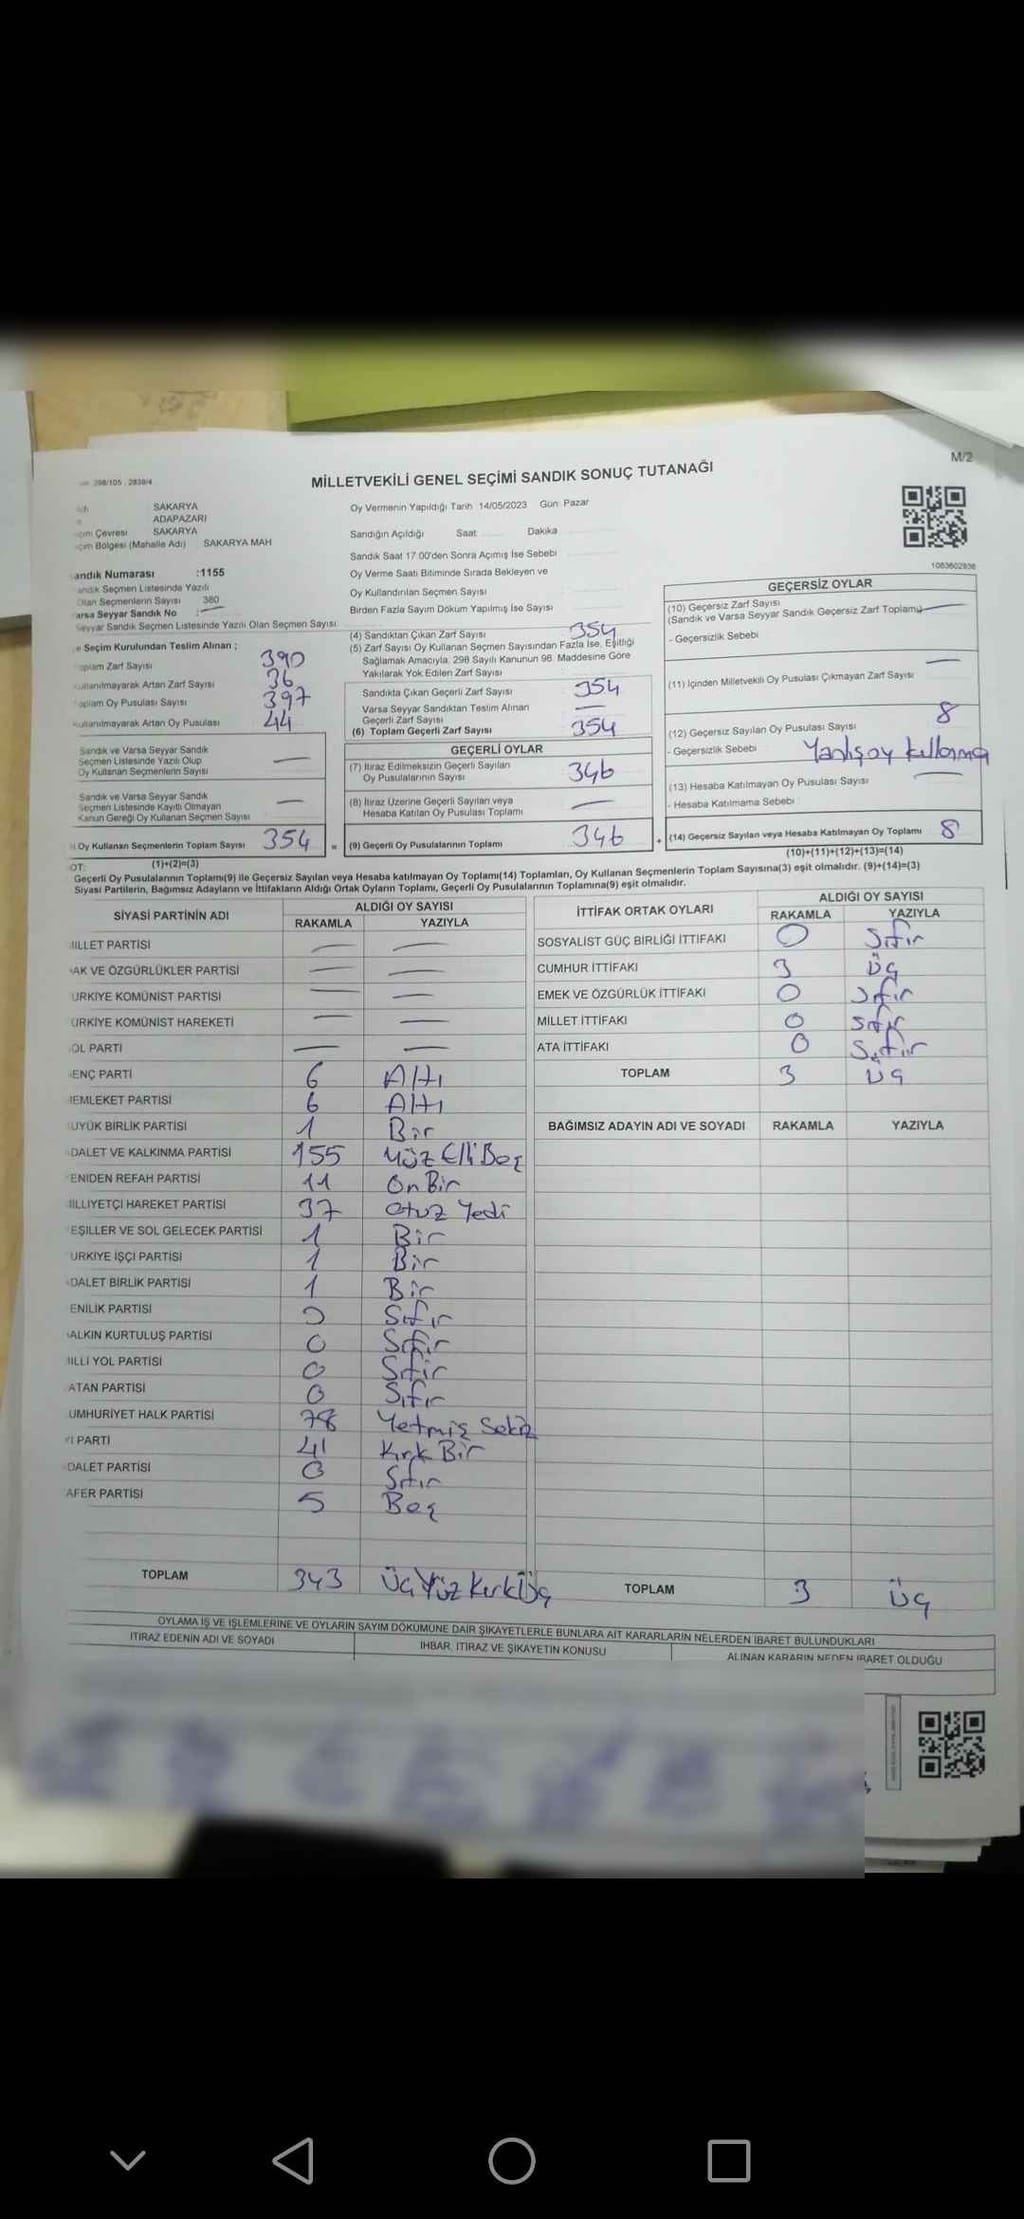 298/105 2839/4
MİLLETVEKİLİ GENEL SEÇİMİ SANDIK SONUÇ TUTANAĞI
M/2
SAKARYA
ADAPAZARI
Çevresi SAKARYA
Bölgesi (Mahalle Adı) SAKARYA MAH
Oy Vermenin Yapıldığı Tarih 14/05/2023 Gün Pazar
Sandığın Açıldığı Saat Dakika
Sandık Saat 17.00'den Sonra Açımış İse Sebebi
Oy Verme Saati Bitiminde Sırada Bekleyen ve
Oy Kullandırılan Seçmen Sayısı
Birden Fazla Sayım Döküm Yapılmış İse Sayısı
1083602836
andık Numarası :1155
andık Seçmen Listesinde Yazılı
Olan Seçmenlerin Sayısı 380
arsa Seyyar Sandık No : —
Seyyar Sandık Seçmen Listesinde Yazılı Olan Seçmen Sayısı
e Seçim Kurulundan Teslim Alınan ;
oplam Zarf Sayısı 390
ullanılmayarak Artan Zarf Sayısı 36
oplam Oy Pusulası Sayısı 397
ullanılmayarak Artan Oy Pusulası 44
Sandık ve Varsa Seyyar Sandık
Seçmen Listesinde Yazılı Olup
Oy Kullanan Seçmenlerin Sayısı —
Sandık ve Varsa Seyyar Sandık
Seçmen Listesinde Kayıtlı Olmayan
Kanun Gereği Oy Kullanan Seçmen Sayısı —
Oy Kullanan Seçmenlerin Toplam Sayısı 354
(1)+(2)=(3)
(4) Sandıktan Çıkan Zarf Sayısı 354
(5) Zarf Sayısı Oy Kullanan Seçmen Sayısından Fazla İse, Eşitliği
Sağlamak Amacıyla, 298 Sayılı Kanunun 98. Maddesine Göre
Yakılarak Yok Edilen Zarf Sayısı
Sandıkta Çıkan Geçerli Zarf Sayısı 354
Varsa Seyyar Sandıktan Teslim Alınan
Geçerli Zarf Sayısı —
(6) Toplam Geçerli Zarf Sayısı 354
GEÇERLİ OYLAR
(7) İtiraz Edilmeksizin Geçerli Sayılan
Oy Pusulalarının Sayısı 346
(8) İtiraz Üzerine Geçerli Sayılan veya
Hesaba Katılan Oy Pusulası Toplamı —
= (9) Geçerli Oy Pusulalarının Toplamı 346
GEÇERSİZ OYLAR
(10) Geçersiz Zarf Sayısı
(Sandık ve Varsa Seyyar Sandık Geçersiz Zarf Toplamı) —
- Geçersizlik Sebebi
(11) İçinden Milletvekili Oy Pusulası Çıkmayan Zarf Sayısı —
(12) Geçersiz Sayılan Oy Pusulası Sayısı 8
- Geçersizlik Sebebi Yanlış oy kullanma
(13) Hesaba Katılmayan Oy Pusulası Sayısı —
- Hesaba Katılmama Sebebi
+ (14) Geçersiz Sayılan veya Hesaba Katılmayan Oy Toplamı 8
(10)+(11)+(12)+(13)=(14)
OT:
Geçerli Oy Pusulalarının Toplamı(9) ile Geçersiz Sayılan veya Hesaba katılmayan Oy Toplamı(14) Toplamları, Oy Kullanan Seçmenlerin Toplam Sayısına(3) eşit olmalıdır. (9)+(14)=(3)
Siyasi Partilerin, Bağımsız Adayların ve İttifakların Aldığı Ortak Oyların Toplamı, Geçerli Oy Pusulalarının Toplamına(9) eşit olmalıdır.
SİYASİ PARTİNİN ADI ALDIĞI OY SAYISI
RAKAMLA YAZIYLA
MİLLET PARTİSİ — —
AK VE ÖZGÜRLÜKLER PARTİSİ — —
ÜRKİYE KOMÜNİST PARTİSİ — —
ÜRKİYE KOMÜNİST HAREKETİ — —
OL PARTİ — —
ENÇ PARTİ 6 Altı
MEMLEKET PARTİSİ 6 Altı
ÜYÜK BİRLİK PARTİSİ 1 Bir
DALET VE KALKINMA PARTİSİ 155 Yüz Elli Beş
ENİDEN REFAH PARTİSİ 11 On Bir
MİLLİYETÇİ HAREKET PARTİSİ 37 Otuz Yedi
EŞİLLER VE SOL GELECEK PARTİSİ 1 Bir
ÜRKİYE İŞÇİ PARTİSİ 1 Bir
DALET BİRLİK PARTİSİ 1 Bir
ENİLİK PARTİSİ 0 Sıfır
ALKIN KURTULUŞ PARTİSİ 0 Sıfır
MİLLİ YOL PARTİSİ 0 Sıfır
ATAN PARTİSİ 0 Sıfır
UMHURİYET HALK PARTİSİ 78 Yetmiş Sekiz
İ PARTİ 41 Kırk Bir
DALET PARTİSİ 0 Sıfır
AFER PARTİSİ 5 Beş
TOPLAM 343 Üç Yüz Kırk Üç
İTTİFAK ORTAK OYLARI ALDIĞI OY SAYISI
RAKAMLA YAZIYLA
SOSYALİST GÜÇ BİRLİĞİ İTTİFAKI 0 Sıfır
CUMHUR İTTİFAKI 3 Üç
EMEK VE ÖZGÜRLÜK İTTİFAKI 0 Sıfır
MİLLET İTTİFAKI 0 Sıfır
ATA İTTİFAKI 0 Sıfır
TOPLAM 3 Üç
BAĞIMSIZ ADAYIN ADI VE SOYADI RAKAMLA YAZIYLA
TOPLAM 3 Üç
OYLAMA İŞ VE İŞLEMLERİNE VE OYLARIN SAYIM DÖKÜMÜNE DAİR ŞİKAYETLERLE BUNLARA AİT KARARLARIN NELERDEN İBARET BULUNDUKLARI
İTİRAZ EDENİN ADI VE SOYADI İHBAR, İTİRAZ VE ŞİKAYETİN KONUSU ALINAN KARARIN NEDEN İBARET OLDUĞU